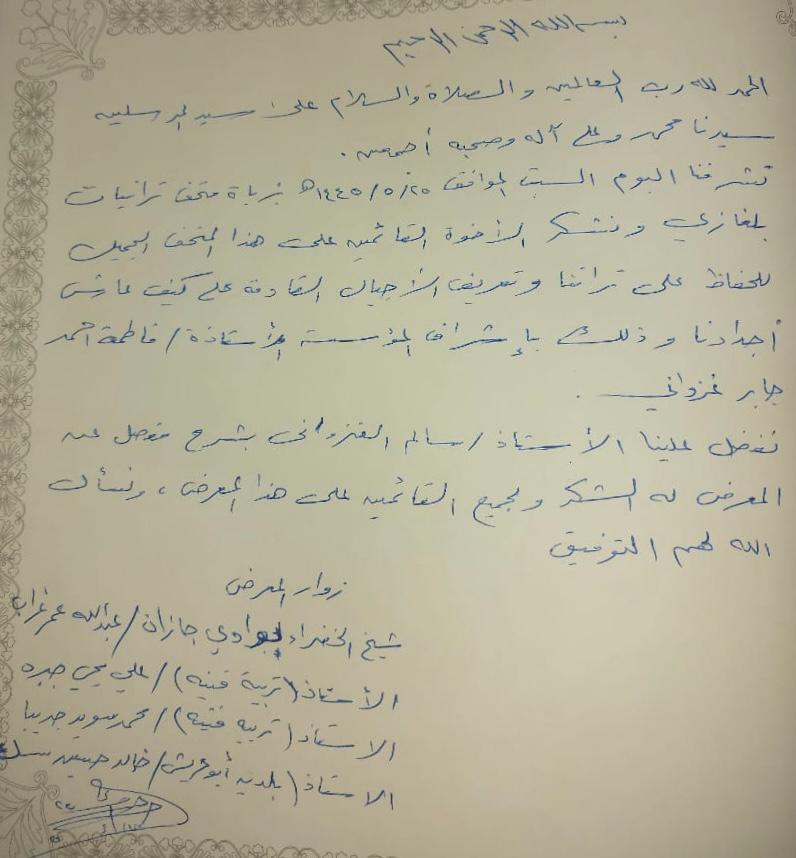 بسم الله الرحمن الرحيم
الحمد لله رب العالمين والصلاة والسلام على سيد المرسلين
سيدنا محمد وعلى آله وصحبه أجمعين .
تشرفنا اليوم السبت الموافق ١٤٤٥/٥/٢٥هـ بزيارة متحف تراثيات
بلغازي ونشكر الأخوة القائمين على هذا المتحف الجميل
للحفاظ على تراثنا وتعريف الأجيال القادمة على كيف عاش
أجدادنا وذلك بإشراف المؤسسة الأستاذة / فاطمة احمد
جابر غزواني .
تفضل علينا الأستاذ / سالم الغزواني بشرح مفصل عن
المعرض له الشكر ولجميع القائمين على هذا المعرض ، ونسأل
الله لهم التوفيق
زوار المعرض
شيخ الخضراء بوادي جازان / عبدالله عمر غراب
الأستاذ (تربية فنية) / علي يحي جبره
الاستاذ (تربيه فنيه) / محمد سويد جديبا
الاستاذ (بلديه أبوعريش / خالد حسين